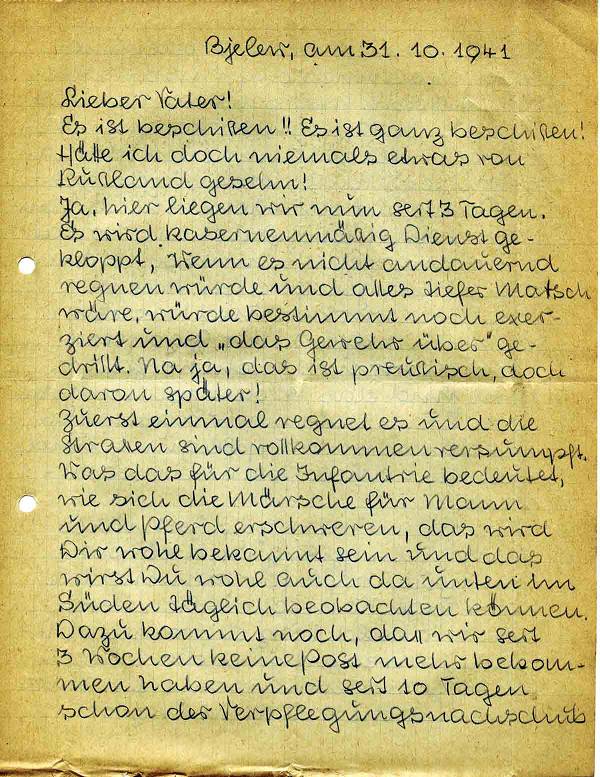 Bjelew, am 31. 10. 1941
Lieber Vater!
Es ist beschißen!! Es ist ganz beschißen!
Hätte ich doch niemals etwas von
Rußland gesehn!
Ja, hier liegen wir nun seit 3 Tagen.
Es wird kasernenmäßig Dienst ge-
kloppt, Wenn es nicht andauernd
regnen würde und alles tiefer Matsch
wäre, würde bestimmt noch exer-
ziert und „das Gewehr über" ge-
drillt. Na ja, das ist preußisch, doch
davon später!
Zuerst einmal regnet es und die
Straßen sind vollkommen versumpft.
Was das für die Infantrie bedeutet,
wie sich die Märsche für Mann
und Pferd erschweren, das wird
Dir wohl bekannt sein und das
wirst Du wohl auch da unten im
Süden täglich beobachten können.
Dazu kommt noch, daß wir seit
3 Wochen keine Post mehr bekom-
men haben und seit 10 Tagen
schon der Verpflegungsnachschub